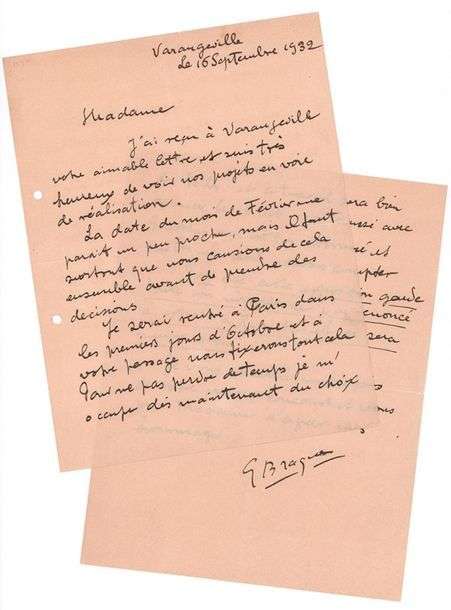 Varangeville
le 16 Septembre 1932
Madame
J'ai reçu à Varangeville
votre aimable lettre et suis très
heureux de voir nos projets en voie
de réalisation.
La date du mois de Février me
parait un peu proche, mais il faut
surtout que nous causions de cela
ensemble avant de prendre des
decisions
Je serai rentré à Paris dans
les premiers jours d'Octobre et à
votre passage nous fixerons tout cela
Pour ne pas perdre de temps je m'
occupe dès maintenant du choix
sera bien
avec
et
garde
sera
G Braque